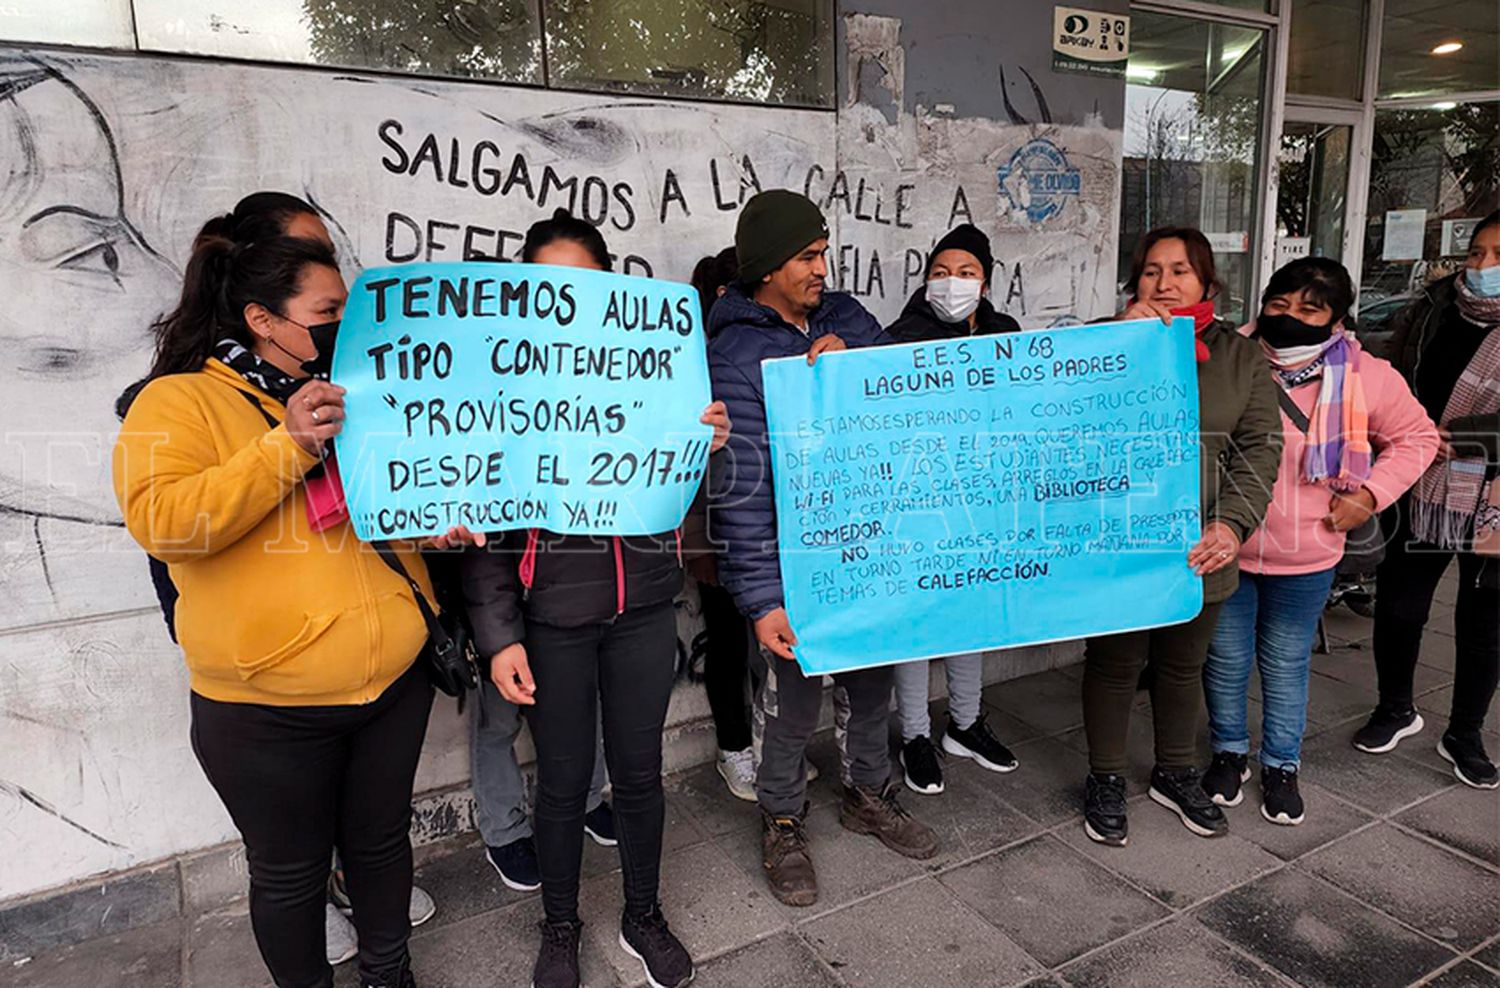 SALGAMOS A LA CALLE A
TENEMOS AULAS
TIPO "CONTENEDOR"
"PROVISORÍAS"
DESDE EL 2017!!!
¡¡¡CONSTRUCCIÓN YA!!!
E.E.S. N° 68
LAGUNA DE LOS PADRES
ESTAMOS ESPERANDO LA CONSTRUCCIÓN
DE AULAS DESDE EL 2019. QUEREMOS AULAS
NUEVAS YA!! LOS ESTUDIANTES NECESITAN
Wi-Fi PARA LAS CLASES, ARREGLOS EN LA CALEFAC-
CIÓN Y CERRAMIENTOS, UNA BIBLIOTECA Y
COMEDOR.
NO HUVO CLASES POR FALTA DE
EN TURNO TARDE NI EN TURNO MAÑANA POR
TEMAS DE CALEFACCIÓN.
TIRE
EL MARPLATENSE